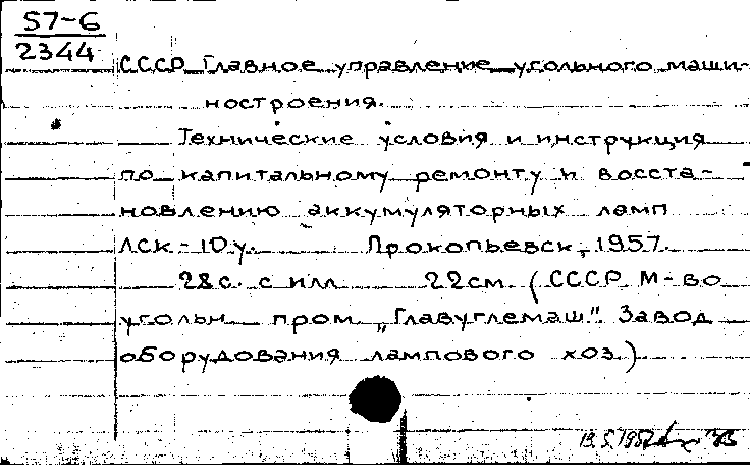 57-6
2344
СССР Главное управление угольного маши-
ностроения.
Технические условия и инструкция
по капитальному ремонту и восста-
новлению аккумуляторных ламп
ЛСК-10у. Прокопьевск, 1957.
28с. с илл 22см. (СССР М-во
угольн пром „Главуглемаш". Завод
оборудования лампового хоз.)